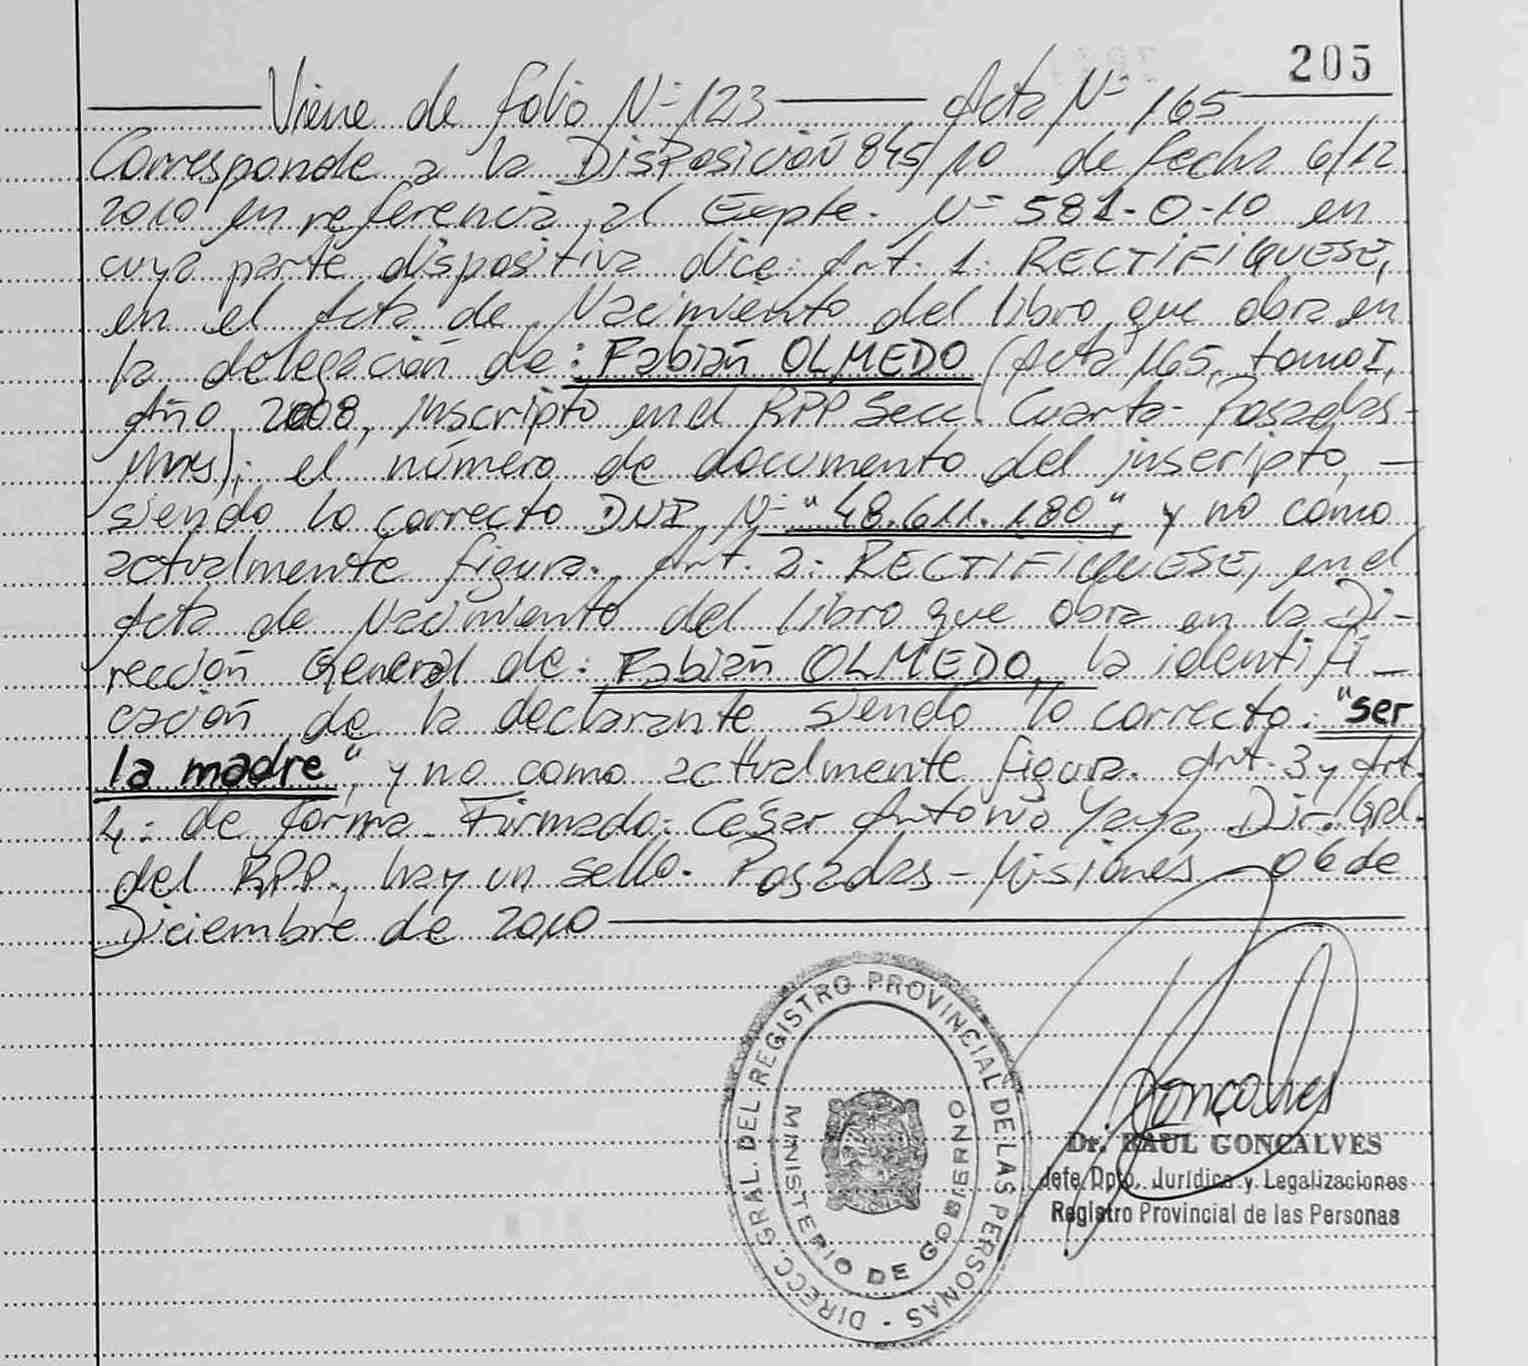 205
Viene de folio Nº 123 Acta Nº 165
Corresponde a la DisPosición 845/10 de fecha 6/12
2010 en referencia al Expte. Nº 581-O-10 en
cuya parte dispositiva dice: Art. 1: RECTIFIQUESE,
en el Acta de Nacimiento del libro que obra en
la delegación de: Fabián OLMEDO (Acta 165, tomo I,
Año 2008, inscripto en el RPP Secc. Cuarta- Posadas-
Mnes); el número de documento del inscripto,
siendo lo correcto DNI Nº "48.611.180", y no como
actualmente figura. Art. 2: RECTIFIQUESE, en el
Acta de Nacimiento del libro que obra en la Di-
rección General de: Fabián OLMEDO, la identifi-
cación de la declarante siendo lo correcto: "ser
la madre", y no como actualmente figura. Art. 3 y Art.
4: de forma. Firmado: César Antonio Yaya, Dir. Gral.
del RPP., hay un sello. Posadas - Misiones 06 de
Diciembre de 2010
DIRECC. GRAL. DEL REGISTRO PROVINCIAL DE LAS PERSONAS -
MINISTERIO DE GOBIERNO
Gonçalves
Dr. RAUL GONCALVES
Jefe Dpto. Jurídica y Legalizaciones
Registro Provincial de las Personas